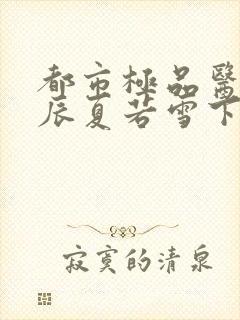 都市極品醫
辰夏若雪下
寂寞的清泉